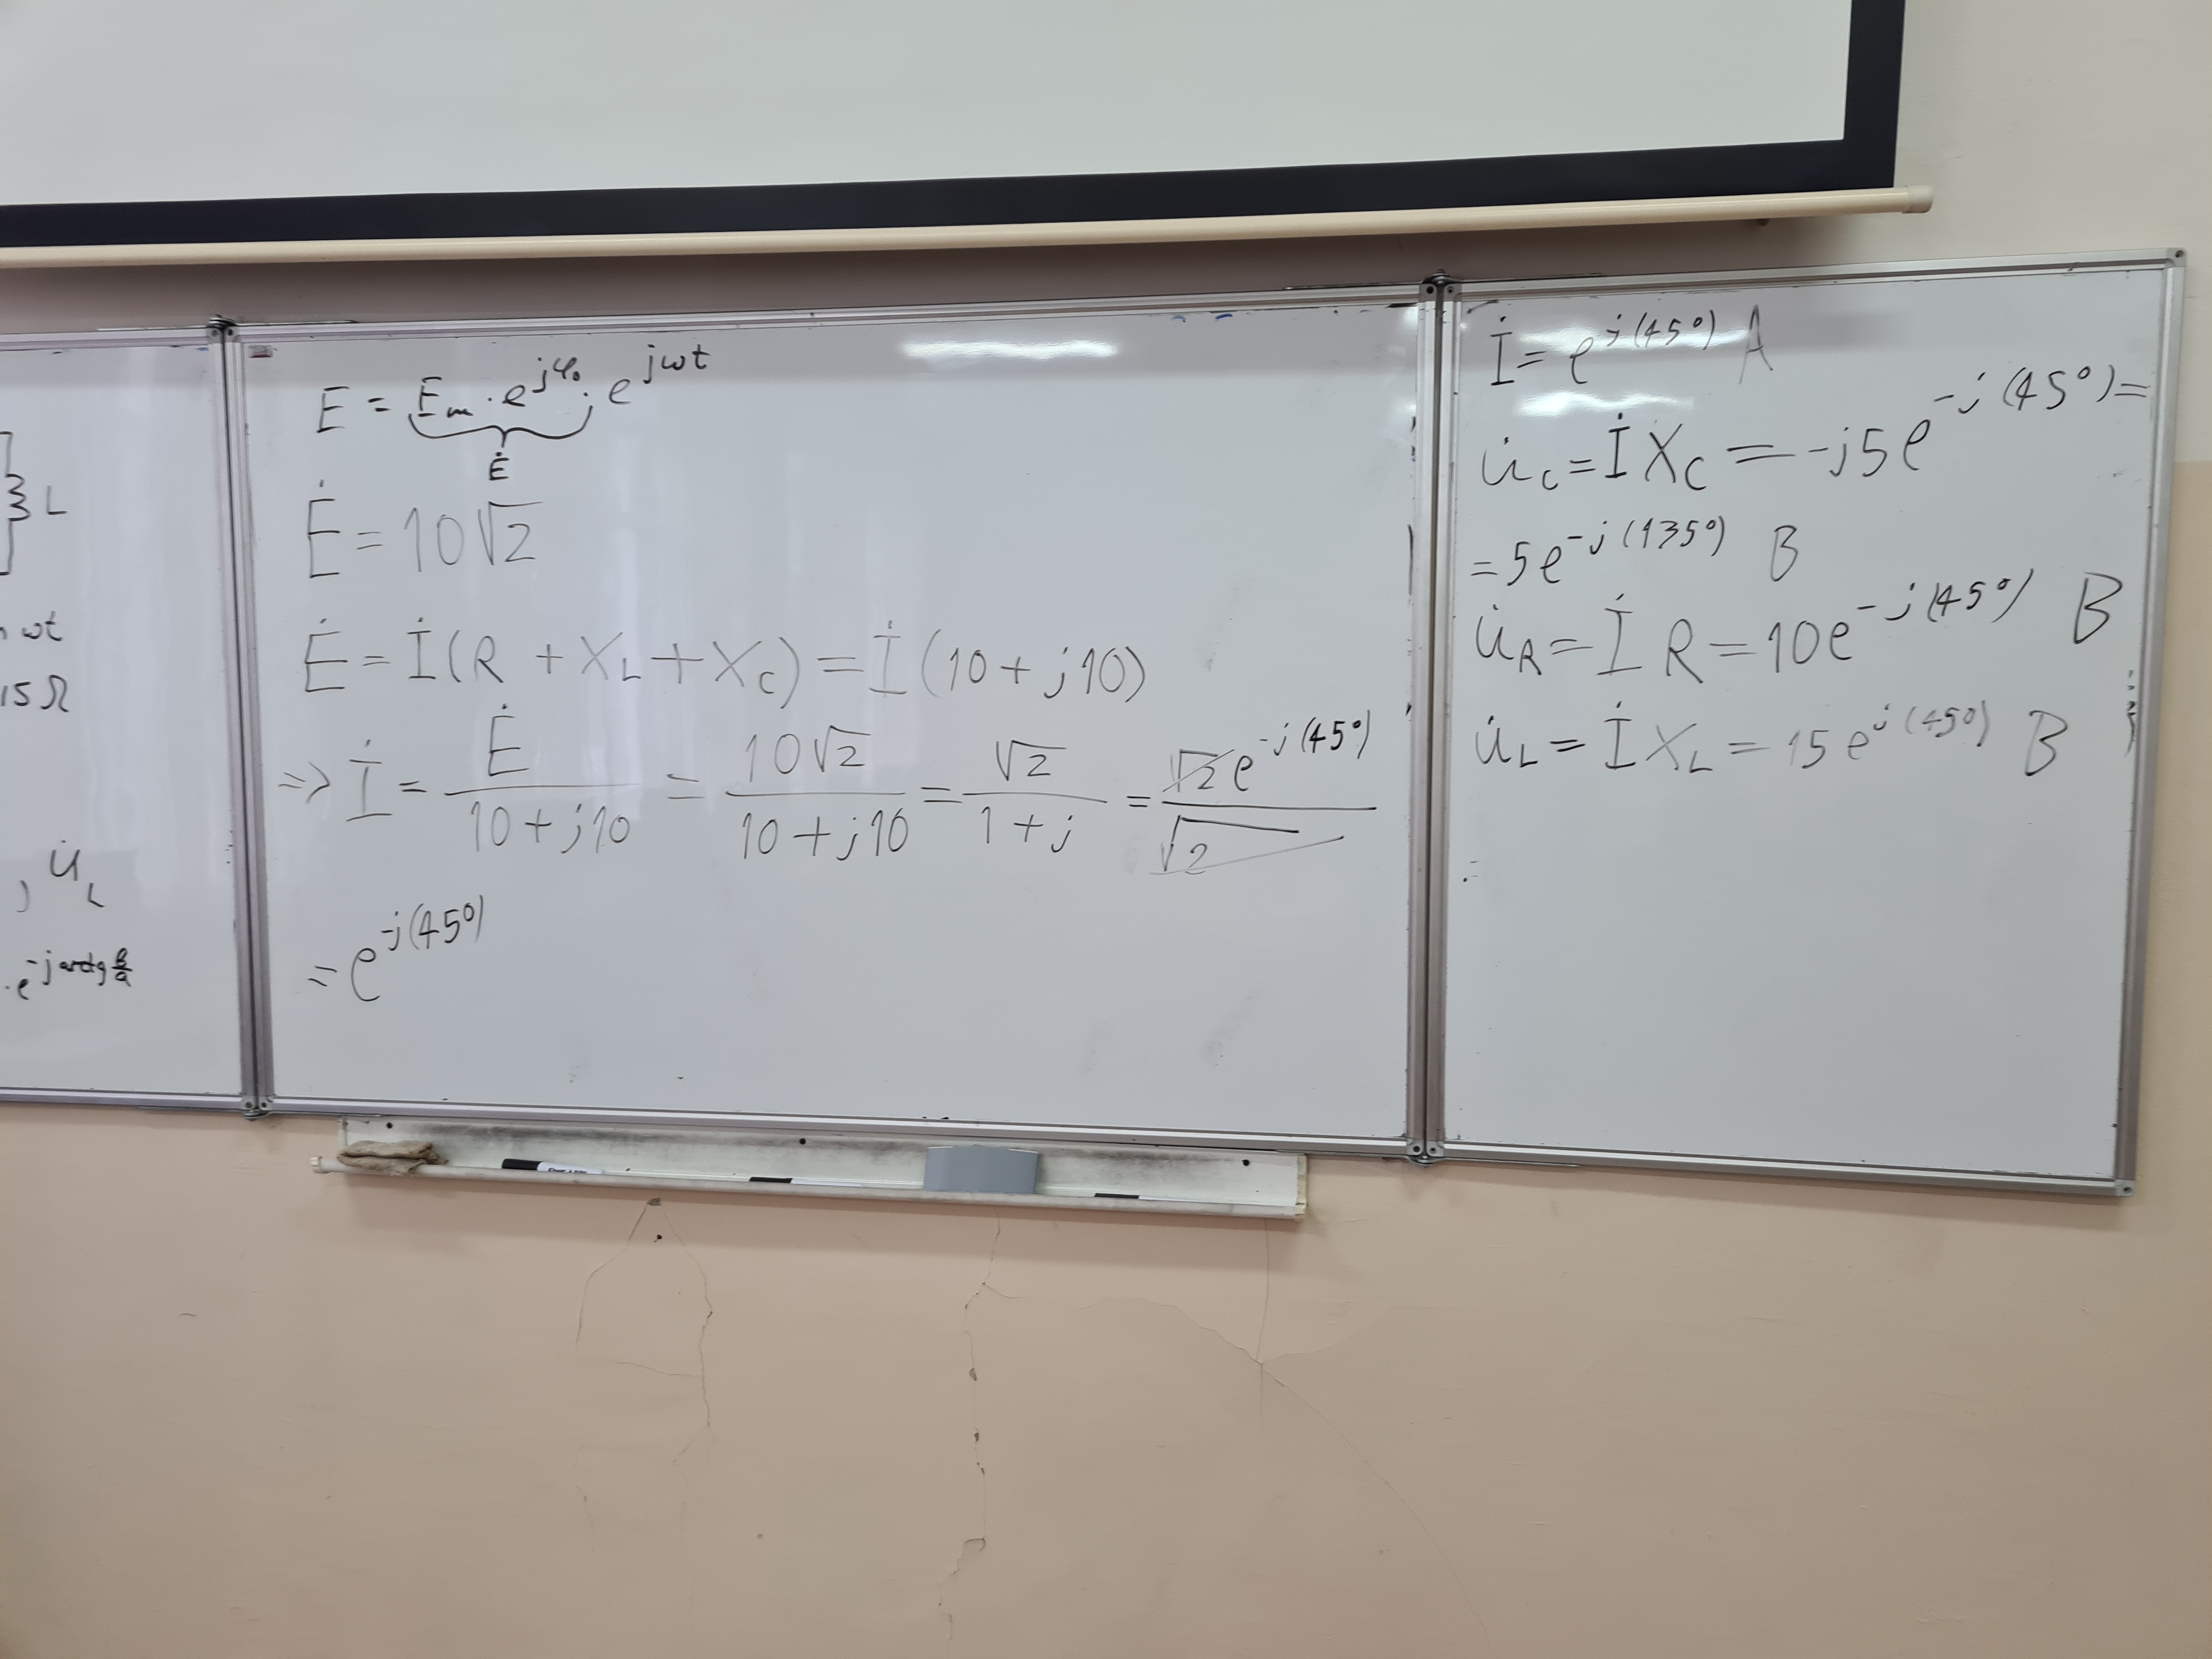 L
ωt
15 Ω
, U̇_L
·e^{-j arctg b/a}
E = E_m · e^{jφ₀} · e^{jωt}
Ė
Ė = 10√2
Ė = İ(R + X_L + X_C) = İ(10 + j10)
=> İ = Ė/(10 + j10) = 10√2/(10 + j10) = √2/(1 + j) = √2 e^{-j(45°)}/√2
= e^{-j(45°)}
İ = e^{j(45°)} A
U̇_C = İ X_C = -j5e^{-j(45°)} =
= 5e^{-j(135°)} В
U̇_R = İ R = 10e^{-j(45°)} В
U̇_L = İ X_L = 15e^{j(45°)} В